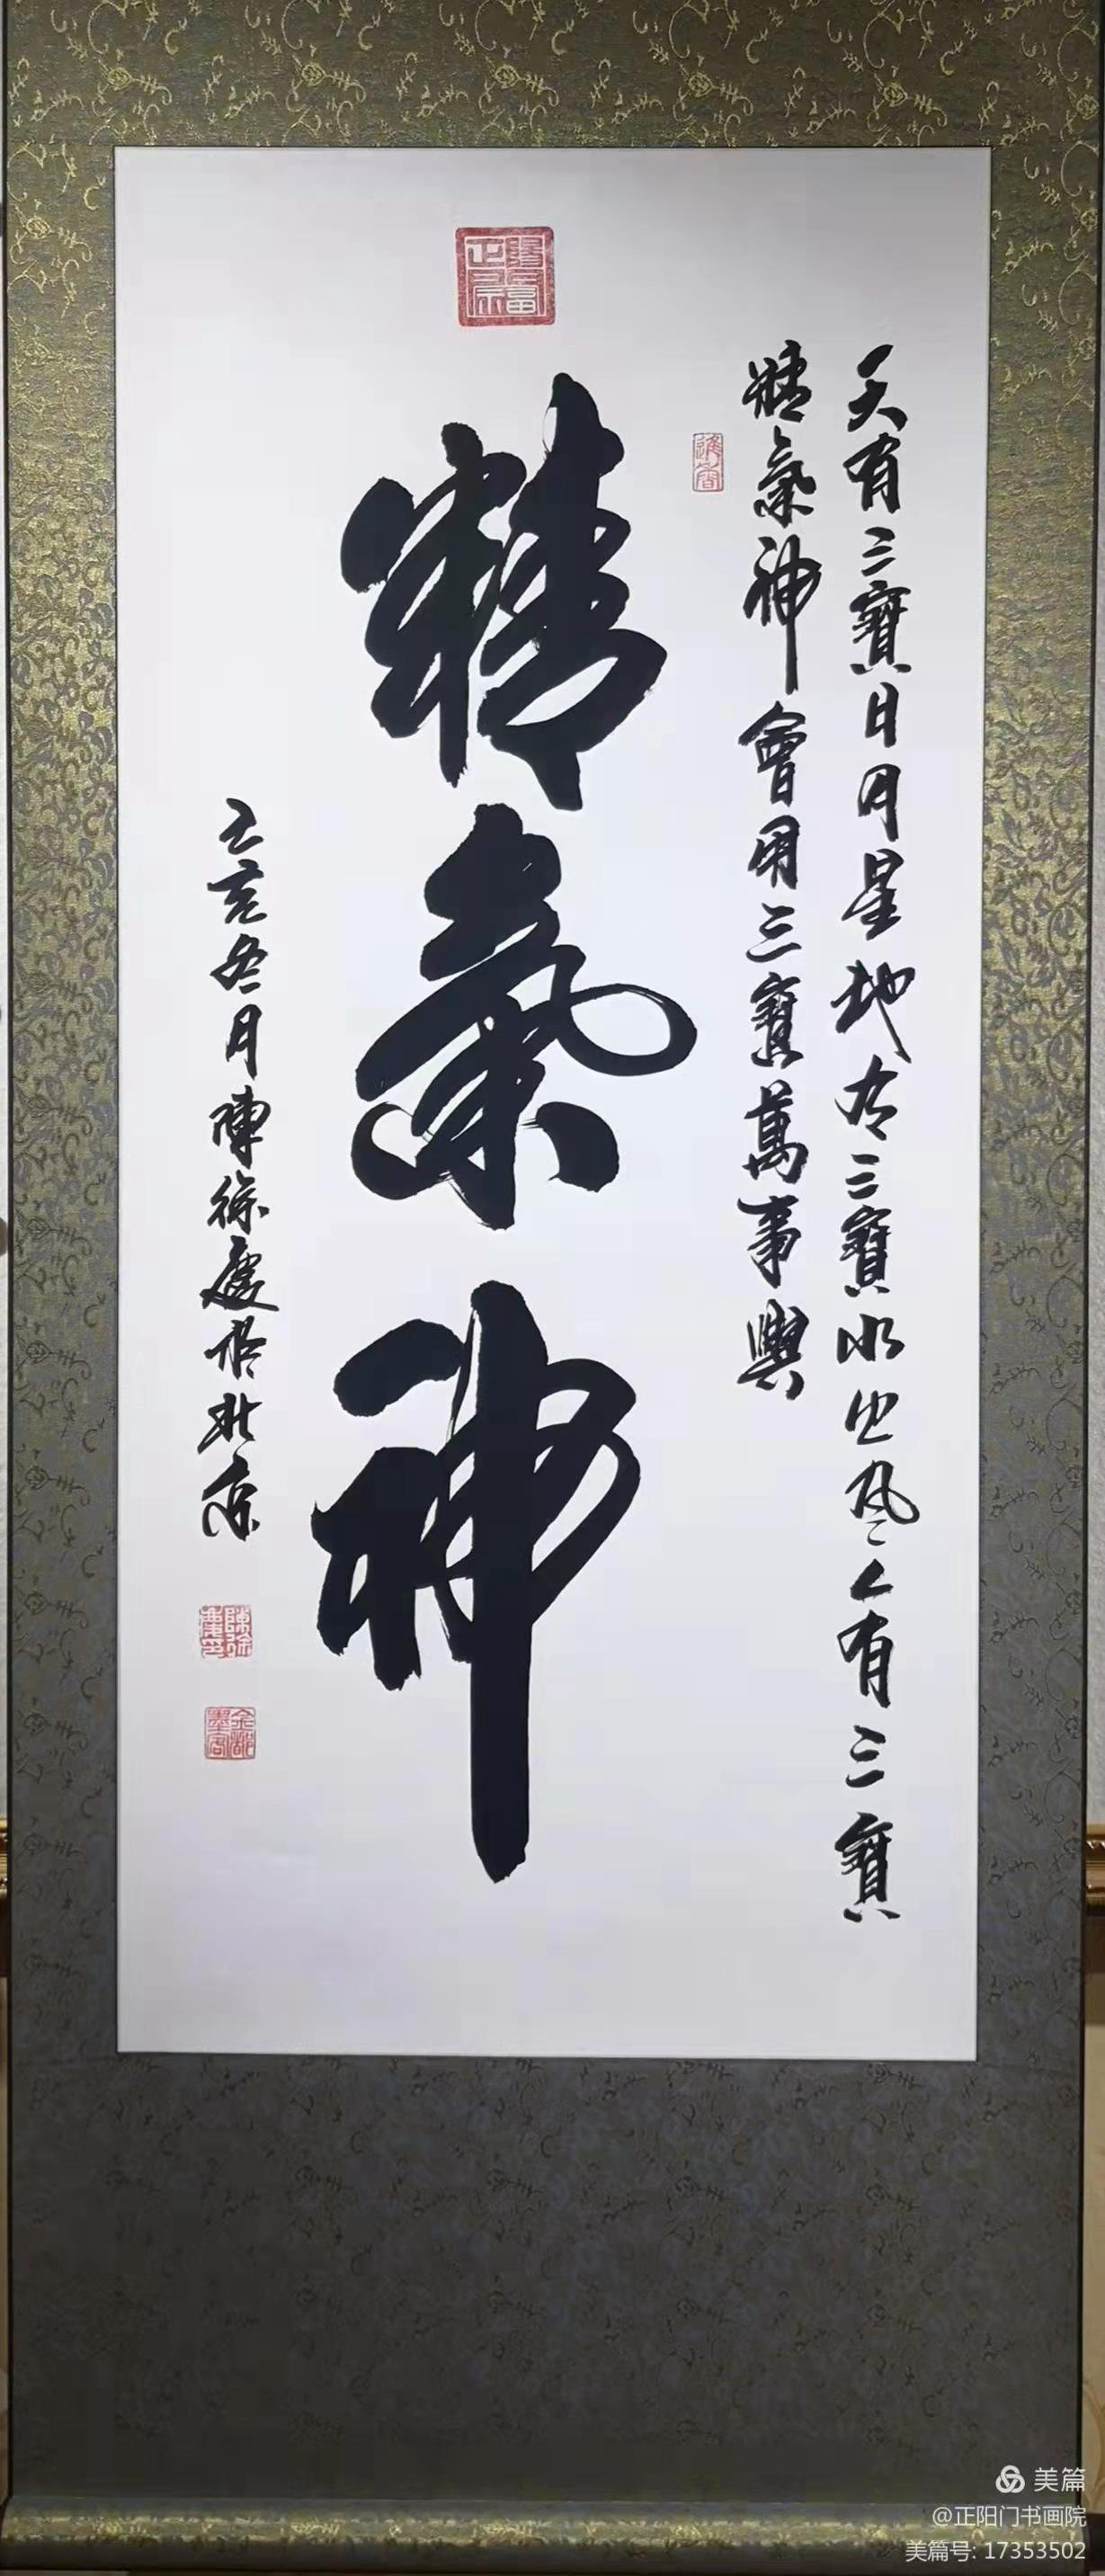 天有三寶日月星地有三寶水火風人有三寶
精氣神會用三寶萬事興
精氣神
己亥冬月陳徐慶於北京
美篇
@正阳门书画院
美篇号: 17353502